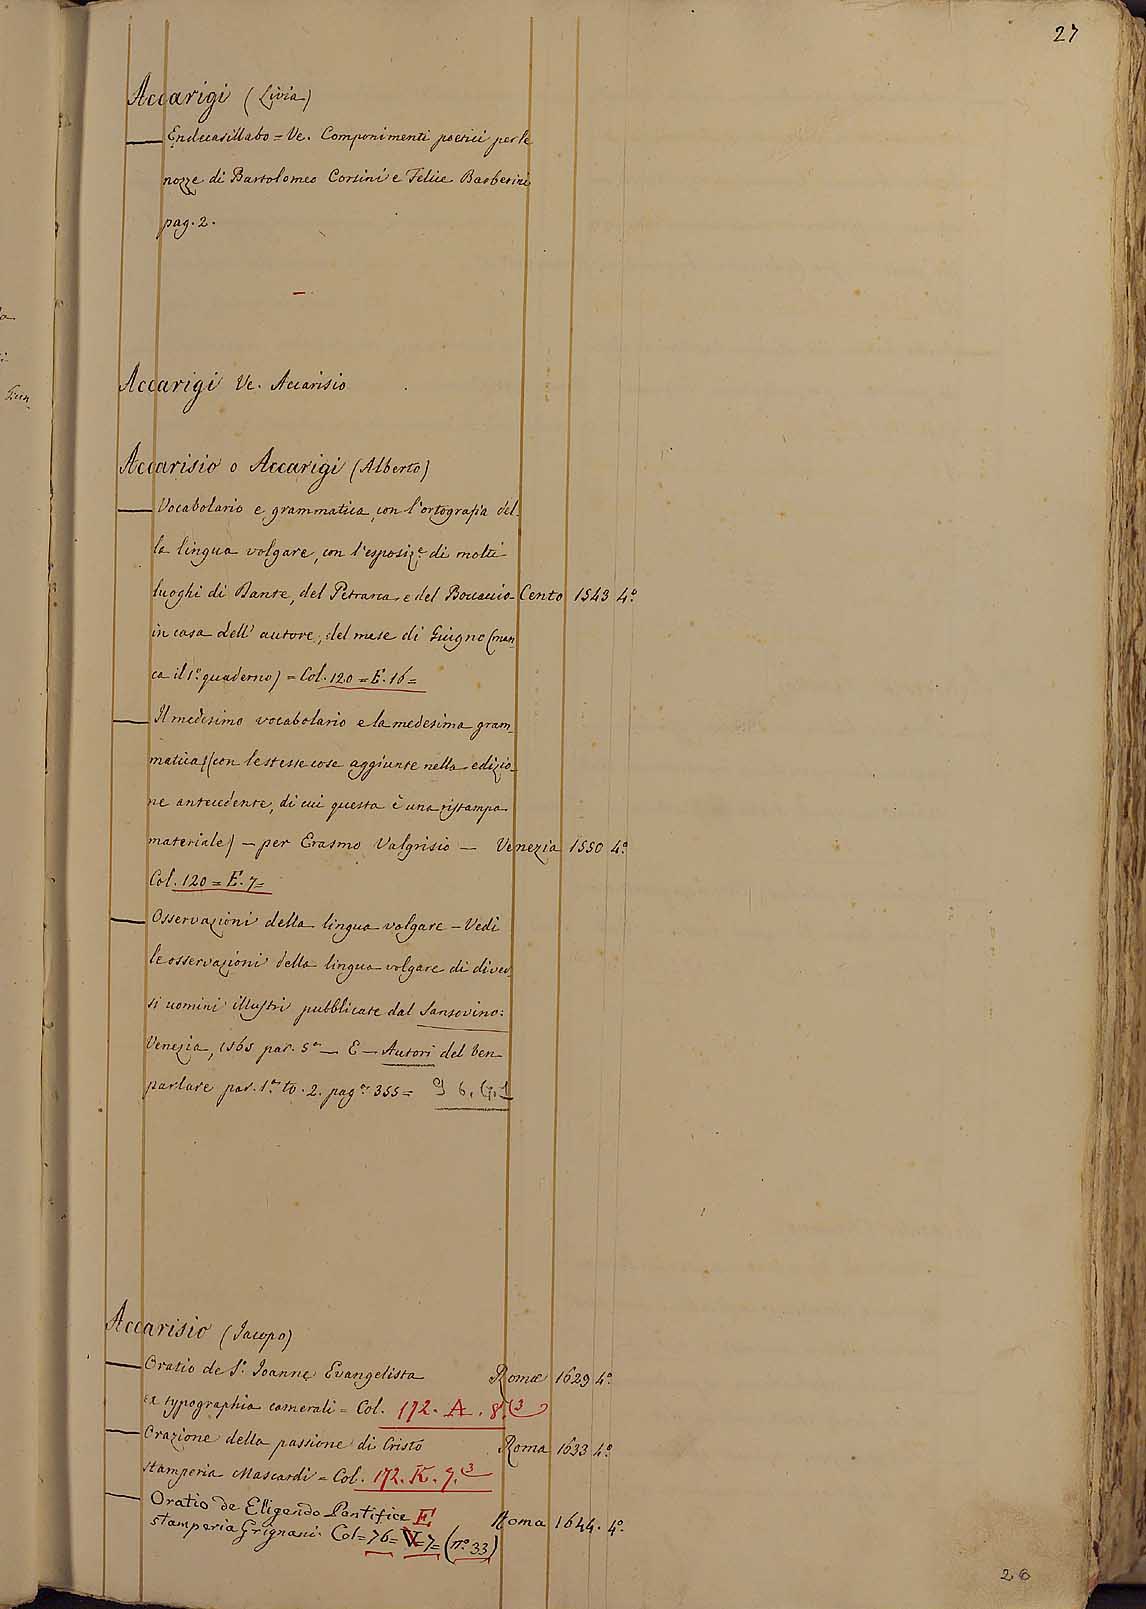 27
Accarigi (Livia)
— Endecasillabo = Ve. Componimenti poetici per le
nozze di Bartolomeo Corsini e Felice Barberini
pag. 2.
Accarigi Ve. Accarisio
Accarisio o Accarigi (Alberto)
— Vocabolario e grammatica, con l'ortografia del-
la lingua volgare, con l'esposiz.e di molti
luoghi di Dante, del Petrarca e del Boccaccio - Cento 1543 4.o
in casa dell' autore, del mese di Giugno (man-
ca il 1.o quaderno) = Col. 120 = E. 16 =
— Il medesimo vocabolario e la medesima gram-
matica (con le stesse cose aggiunte nella edizio-
ne antecedente, di cui questa è una ristampa
materiale) — per Erasmo Valgrisio — Venezia 1550 4.o
Col. 120 = E. 7 =
— Osservazioni della lingua volgare - Vedi
le osservazioni della lingua volgare di diver-
si uomini illustri pubblicate dal Sansovino:
Venezia, 1565 par. 5a — E — Autori del ben
parlare par. 1.a to. 2. pag.e 355 = 9 6. G. 1
Accarisio (Jacopo)
— Oratio de S. Joanne Evangelista Romae 1629 4.o
ex typographia camerali = Col. 172. A. 8.(3
— Orazione della passione di Cristo Roma 1633 4.o
stamperia Mascardi = Col. 172. K. 7.(3
— Oratio de Eligendo Pontifice E Roma 1644. 4.o
stamperia Grignani. Col = 76 = V = 7 = (n.o 33)
26